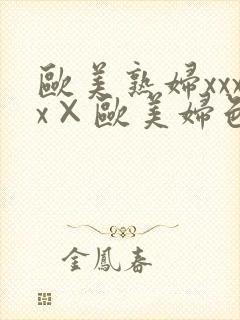 歐美熟婦xxx
x×歐美婦色
金鳳春